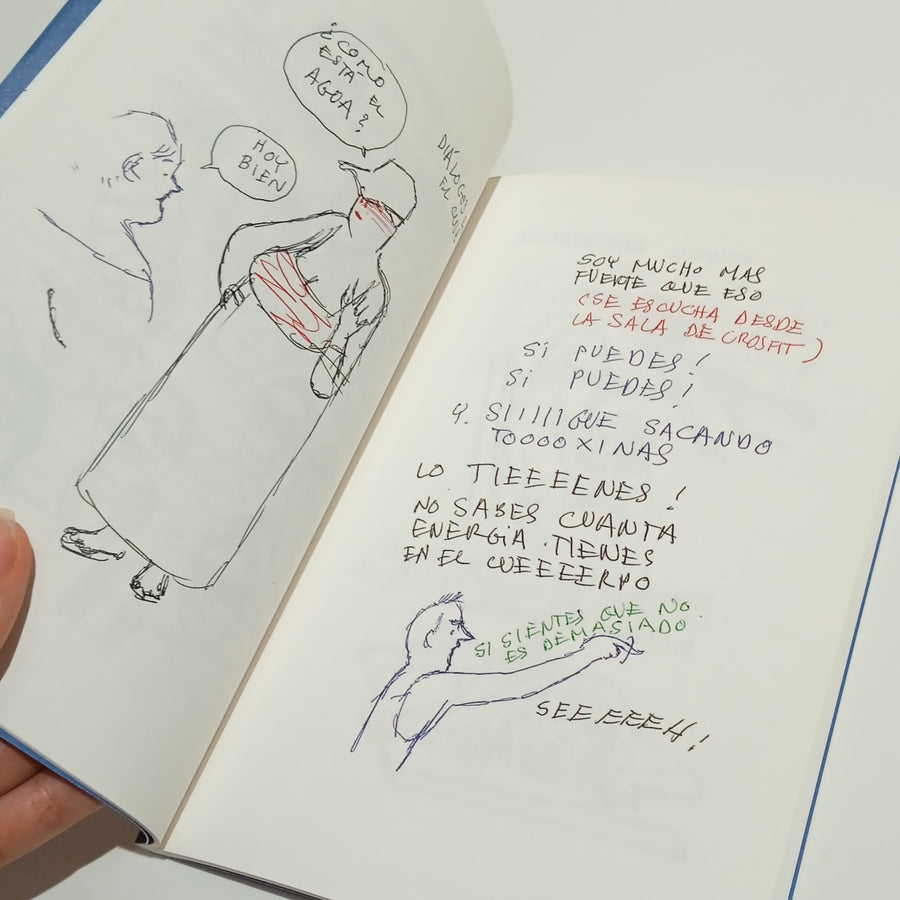 ¿COMO
ESTÁ EL
AGOA?
HOY
BIEN
DIÁLOGOS
EL
SOY MUCHO MAS
FUERTE QUE ESO
(SE ESCUCHA DESDE
LA SALA DE CROSFIT)
SI PUEDES!
SI PUEDES!
Y. SIIIIIGUE SACANDO
TOOOOXINAS
LO TIEEEENES!
NO SABES CUANTA
ENERGIA TIENES
EN EL CUEEEERPO
SI SIENTES QUE NO
ES DEMASIADO
SEEEEEH!